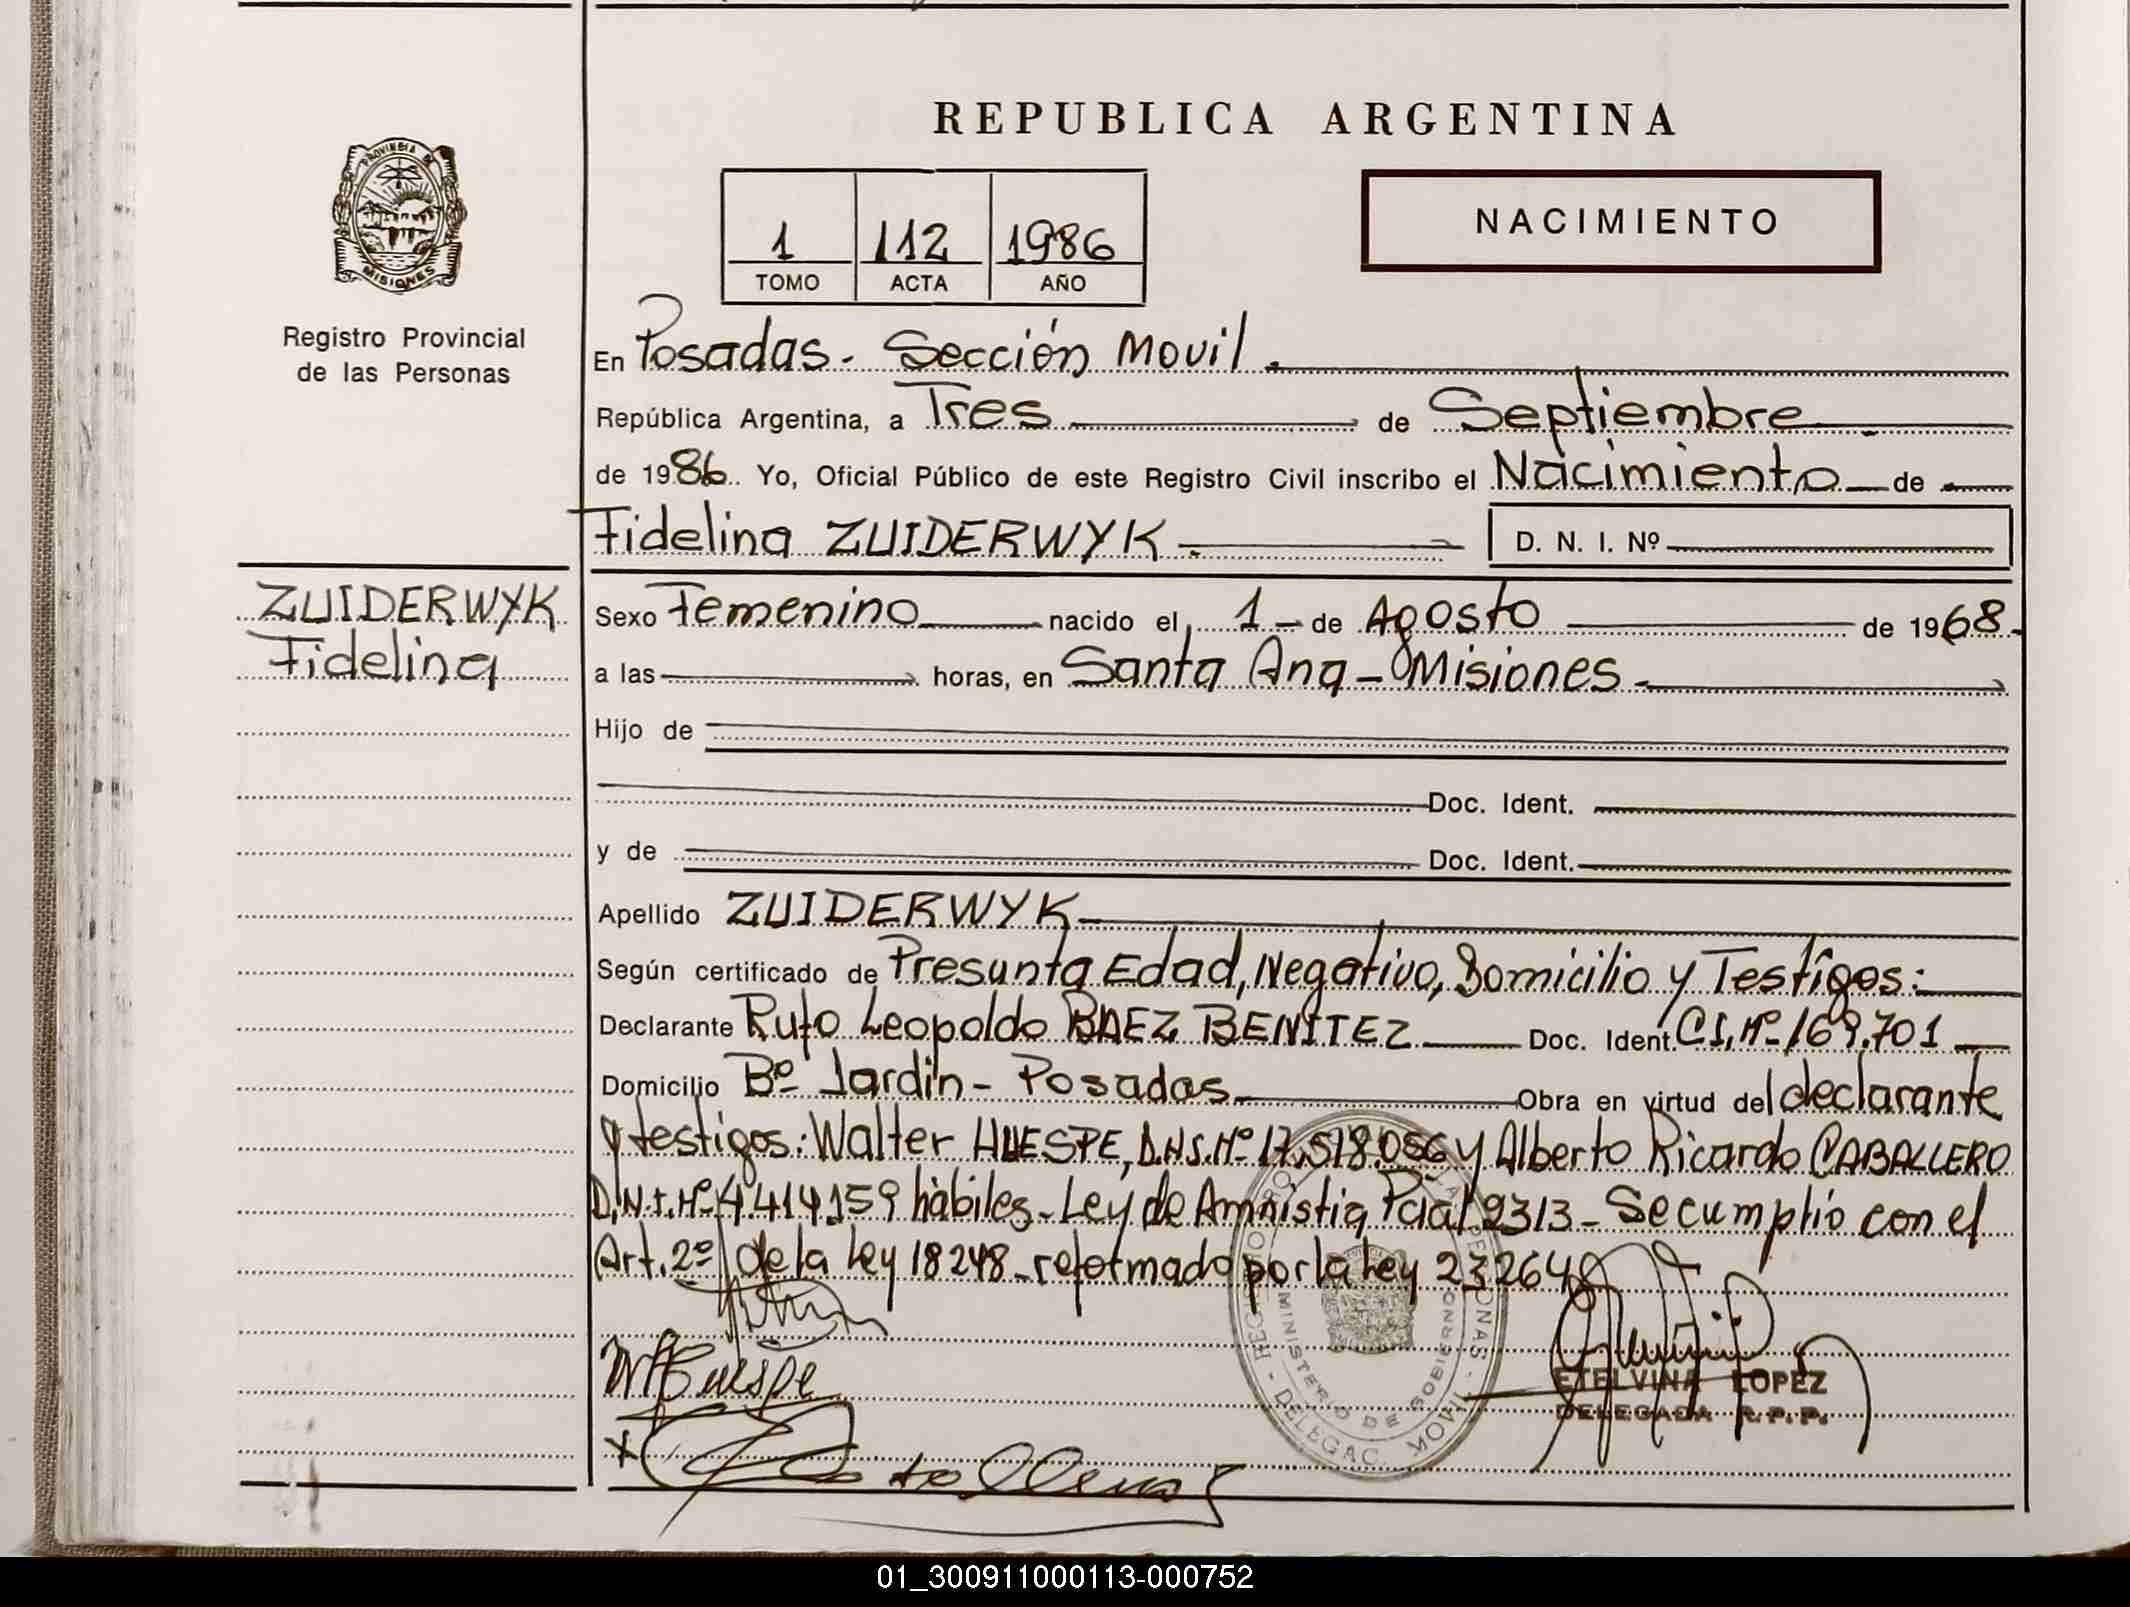 REPUBLICA ARGENTINA
PROVINCIA DE
MISIONES
1 112 1986
TOMO ACTA AÑO
NACIMIENTO
Registro Provincial
de las Personas
En Posadas - Sección Movil.
República Argentina, a Tres de Septiembre
de 1986. Yo, Oficial Público de este Registro Civil inscribo el Nacimiento de
Fidelina ZUIDERWYK. D. N. I. Nº
ZUIDERWYK
Fidelina
Sexo Femenino nacido el 1 - de Agosto de 1968.
a las horas, en Santa Ana - Misiones.
Hijo de
Doc. Ident.
y de Doc. Ident.
Apellido ZUIDERWYK
Según certificado de Presunta Edad, Negativo, Domicilio y Testigos:
Declarante Rufo Leopoldo BAEZ BENITEZ Doc. Ident. C.I. Nº 169.701
Domicilio Bº Jardin - Posadas Obra en virtud del declarante
y testigos: Walter HUESPE, D.N.I. Nº 17.518.056 y Alberto Ricardo CABALLERO
D.N.I. Nº 4.414.159 hàbiles - Ley de Amnistia Pcial 2313 - Se cumplió con el
Art. 2º de la Ley 18248 - reformado por la Ley 23264
W Huespe
ETELVINA LOPEZ
DELEGADA R.P.P.
MINISTERIO DE GOBIERNO
DELEGAC. MOVIL
01_300911000113-000752